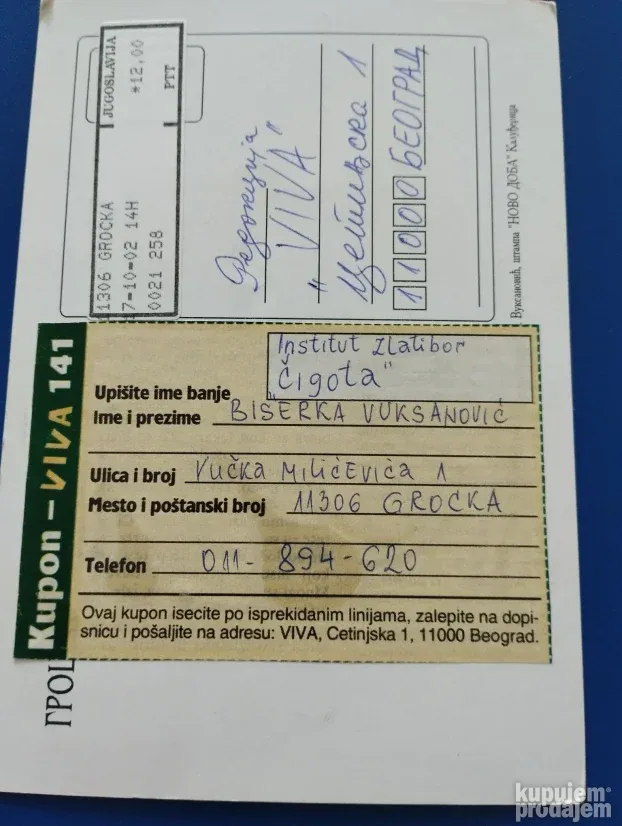 JUGOSLAVIJA
*12,00
PTT
11306 GROCKA
7-10-02 14H
0021 258
Редакција
"VIVA"
Цетињска 1
11000 БЕОГРАД
Вуксановић, штампа "НОВО ДОБА" Калуђерица
Kupon – VIVA 141
Institut Zlatibor
Upišite ime banje "Čigota"
Ime i prezime BISERKA VUKSANOVIĆ
Ulica i broj VUČKA MILIĆEVIĆA 1
Mesto i poštanski broj 11306 GROCKA
Telefon 011-894-620
Ovaj kupon isecite po isprekidanim linijama, zalepite na dopi-
snicu i pošaljite na adresu: VIVA, Cetinjska 1, 11000 Beograd.
ГРОЦ
kupujem
prodajem